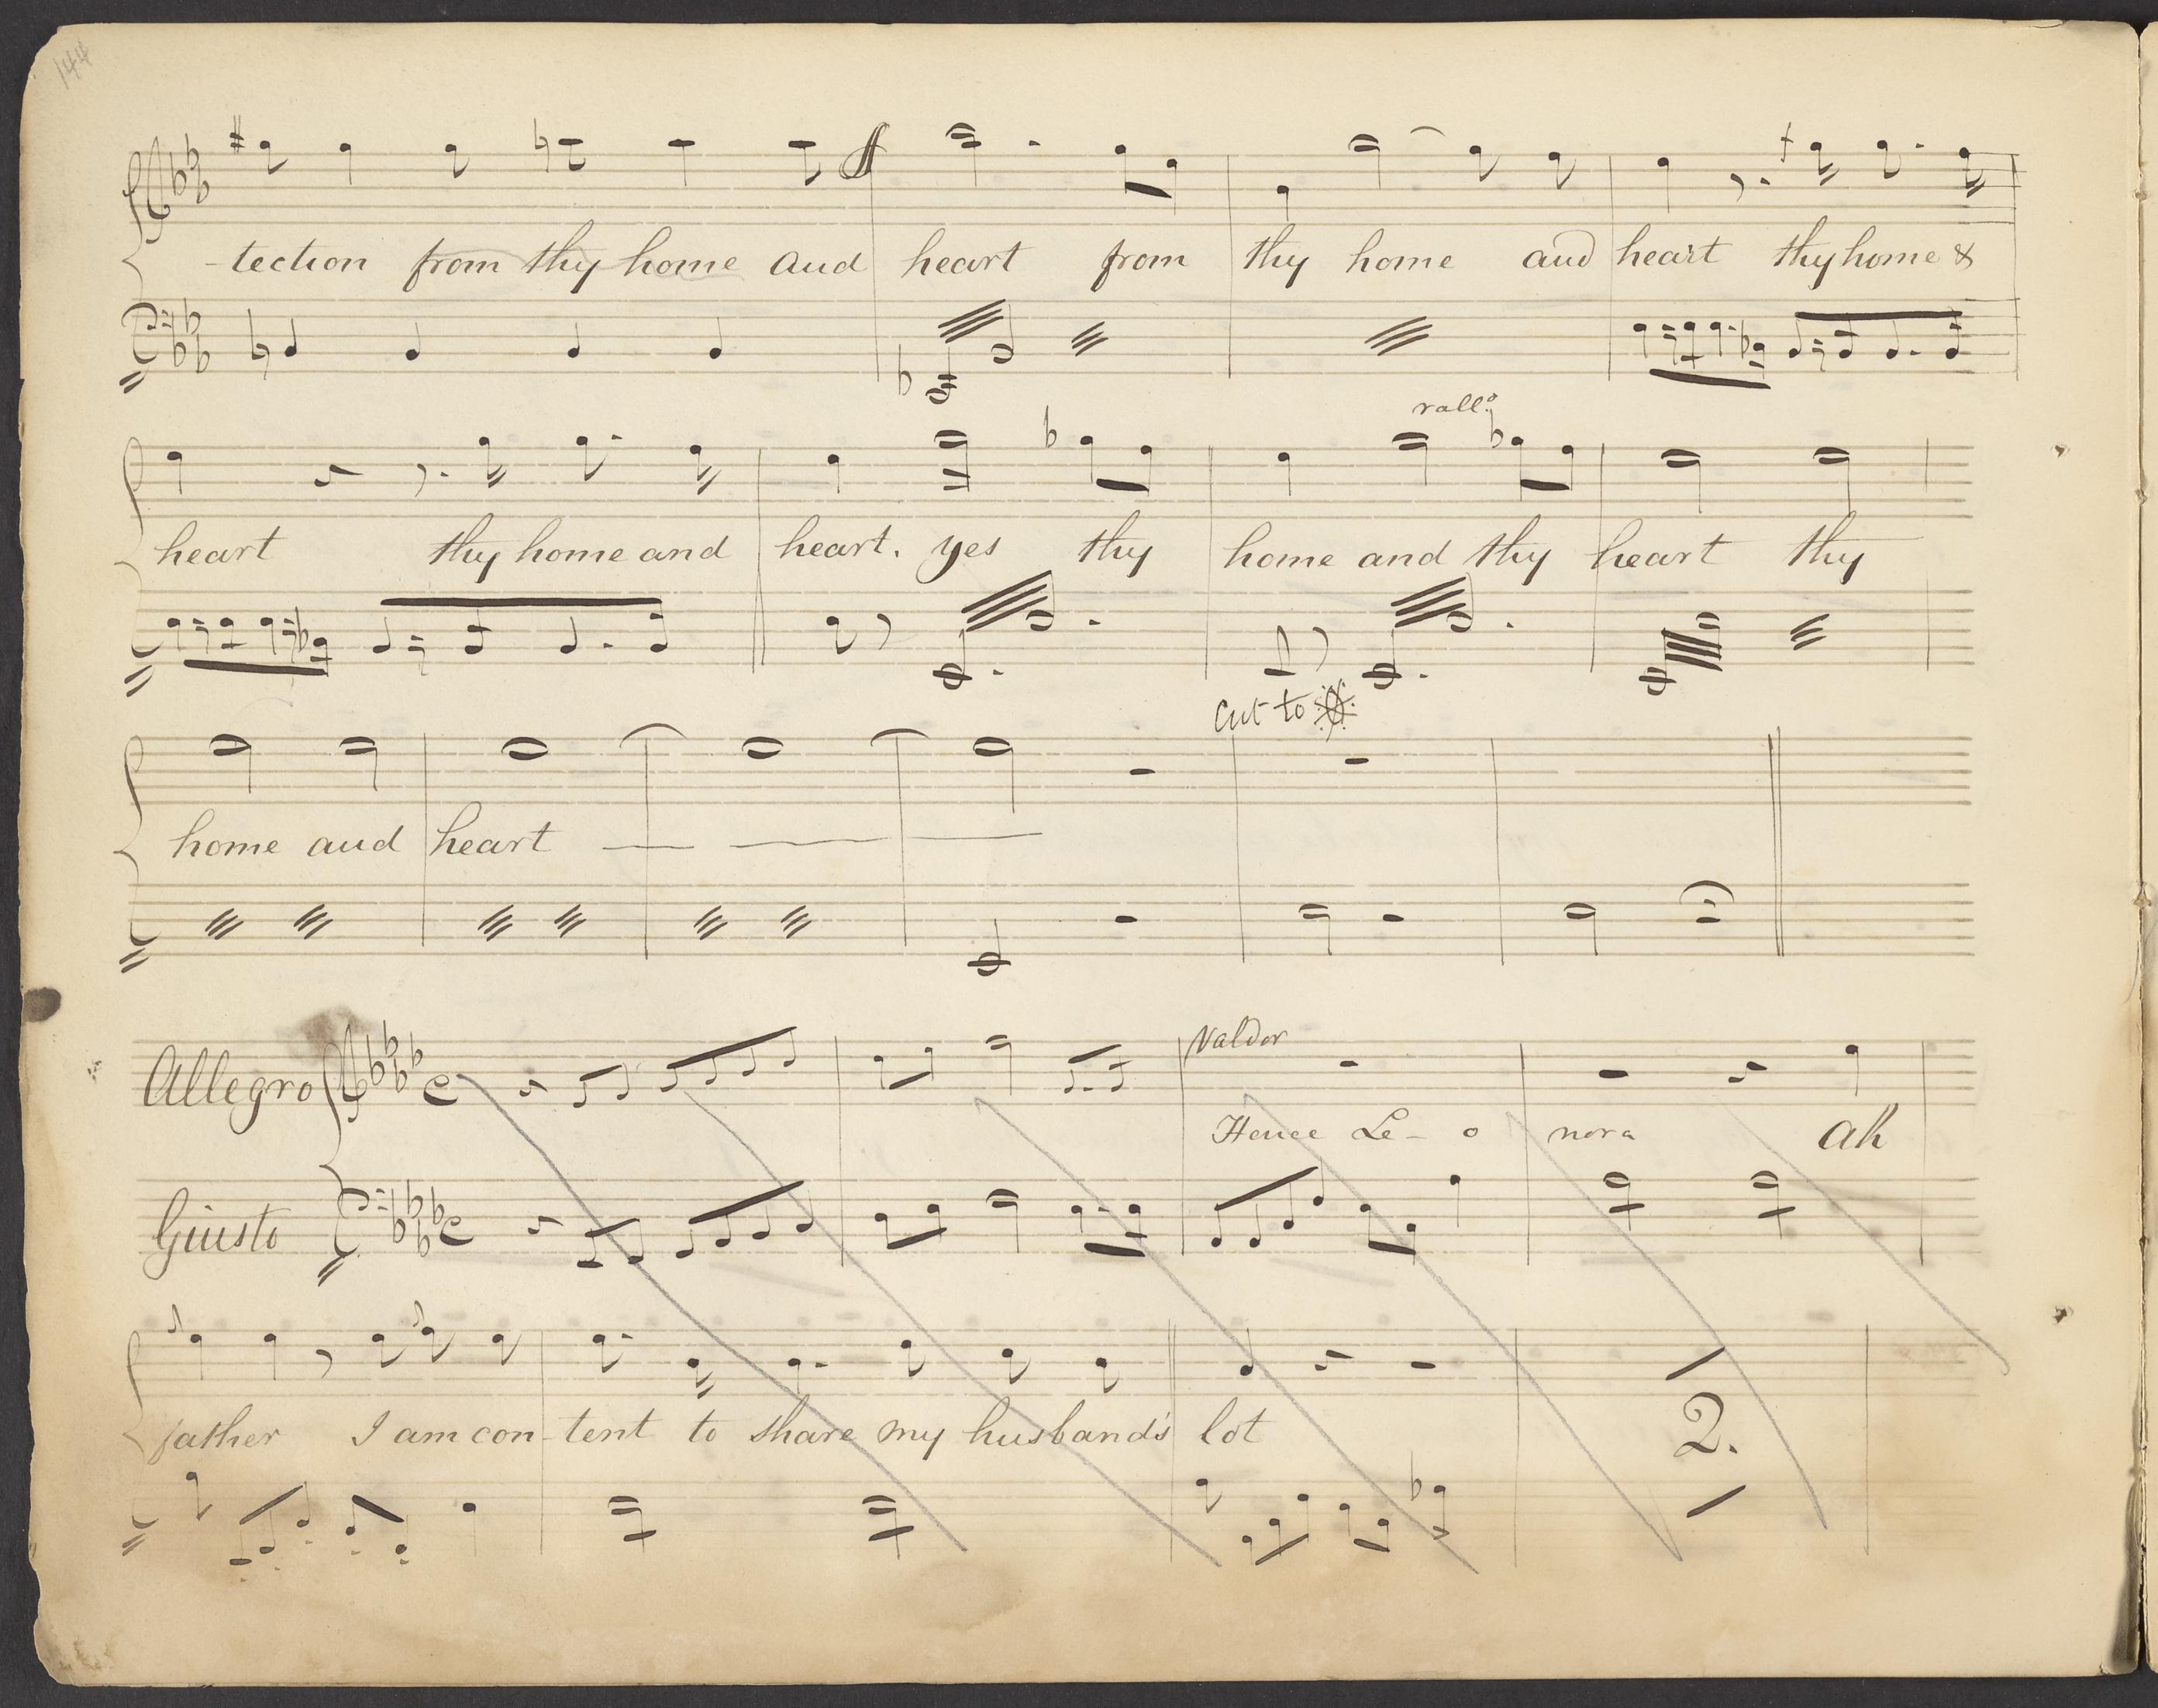 144
ff
-tection from thy home and heart from thy home and heart thy home &
rall:º
heart thy home and heart. yes thy home and thy heart thy
Cut to
home and heart
Valdor
Allegro
Hence Le- o nora ah
Giusto
father I am con-tent to share my husband's lot
2.